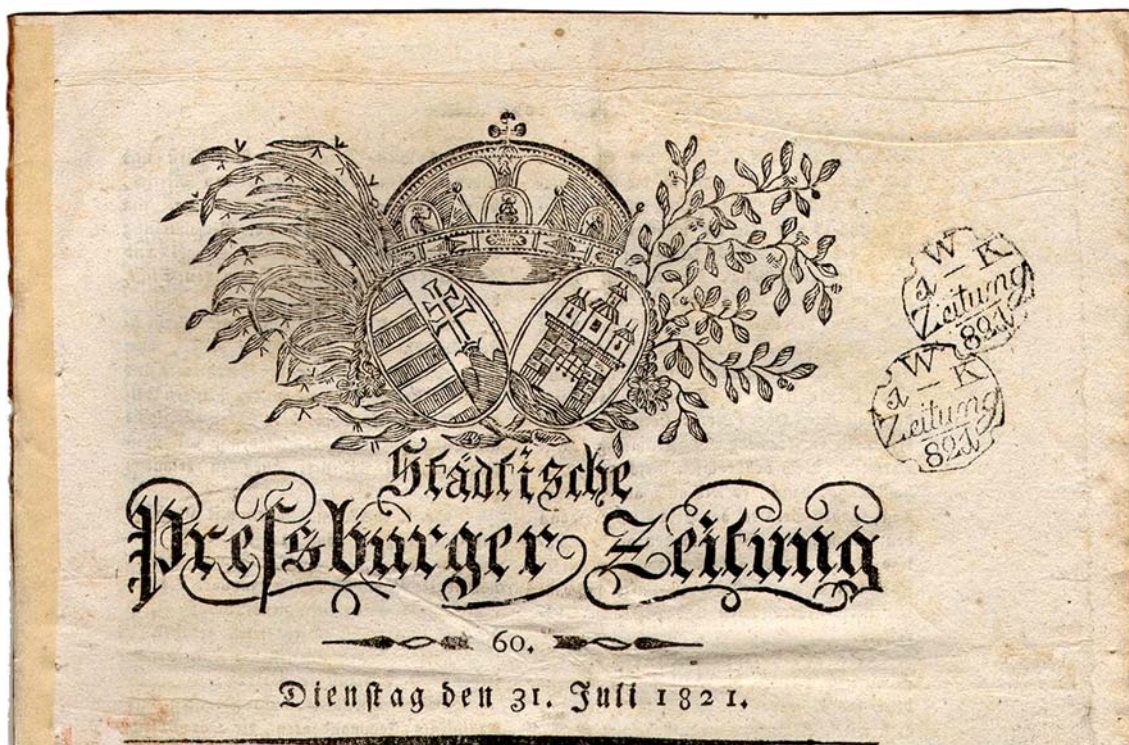 W
1 – K
Zeitung
821
W
1 – K
Zeitung
821
Städtische
Preſsburger Zeitung
60.
Dienſtag den 31. Juli 1821.